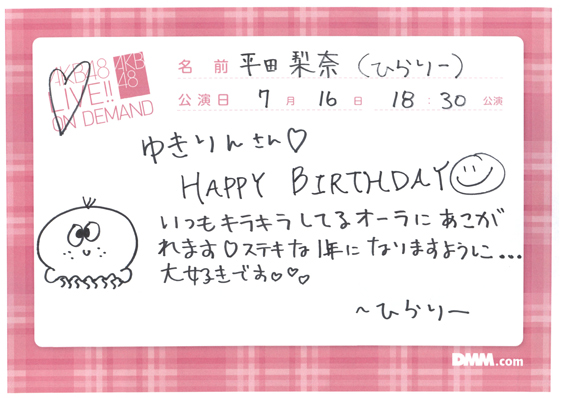 AKB48
LIVE!!
ON DEMAND
AKB
48
名前 平田 梨奈 (ひらりー)
公演日 7月 16日 18:30公演
ゆきりんさん♡
HAPPY BIRTHDAY
いつもキラキラしてるオーラにあこが
れます♡ステキな1年になりますように...
大好きです♡♡♡
～ひらりー
DMM.com